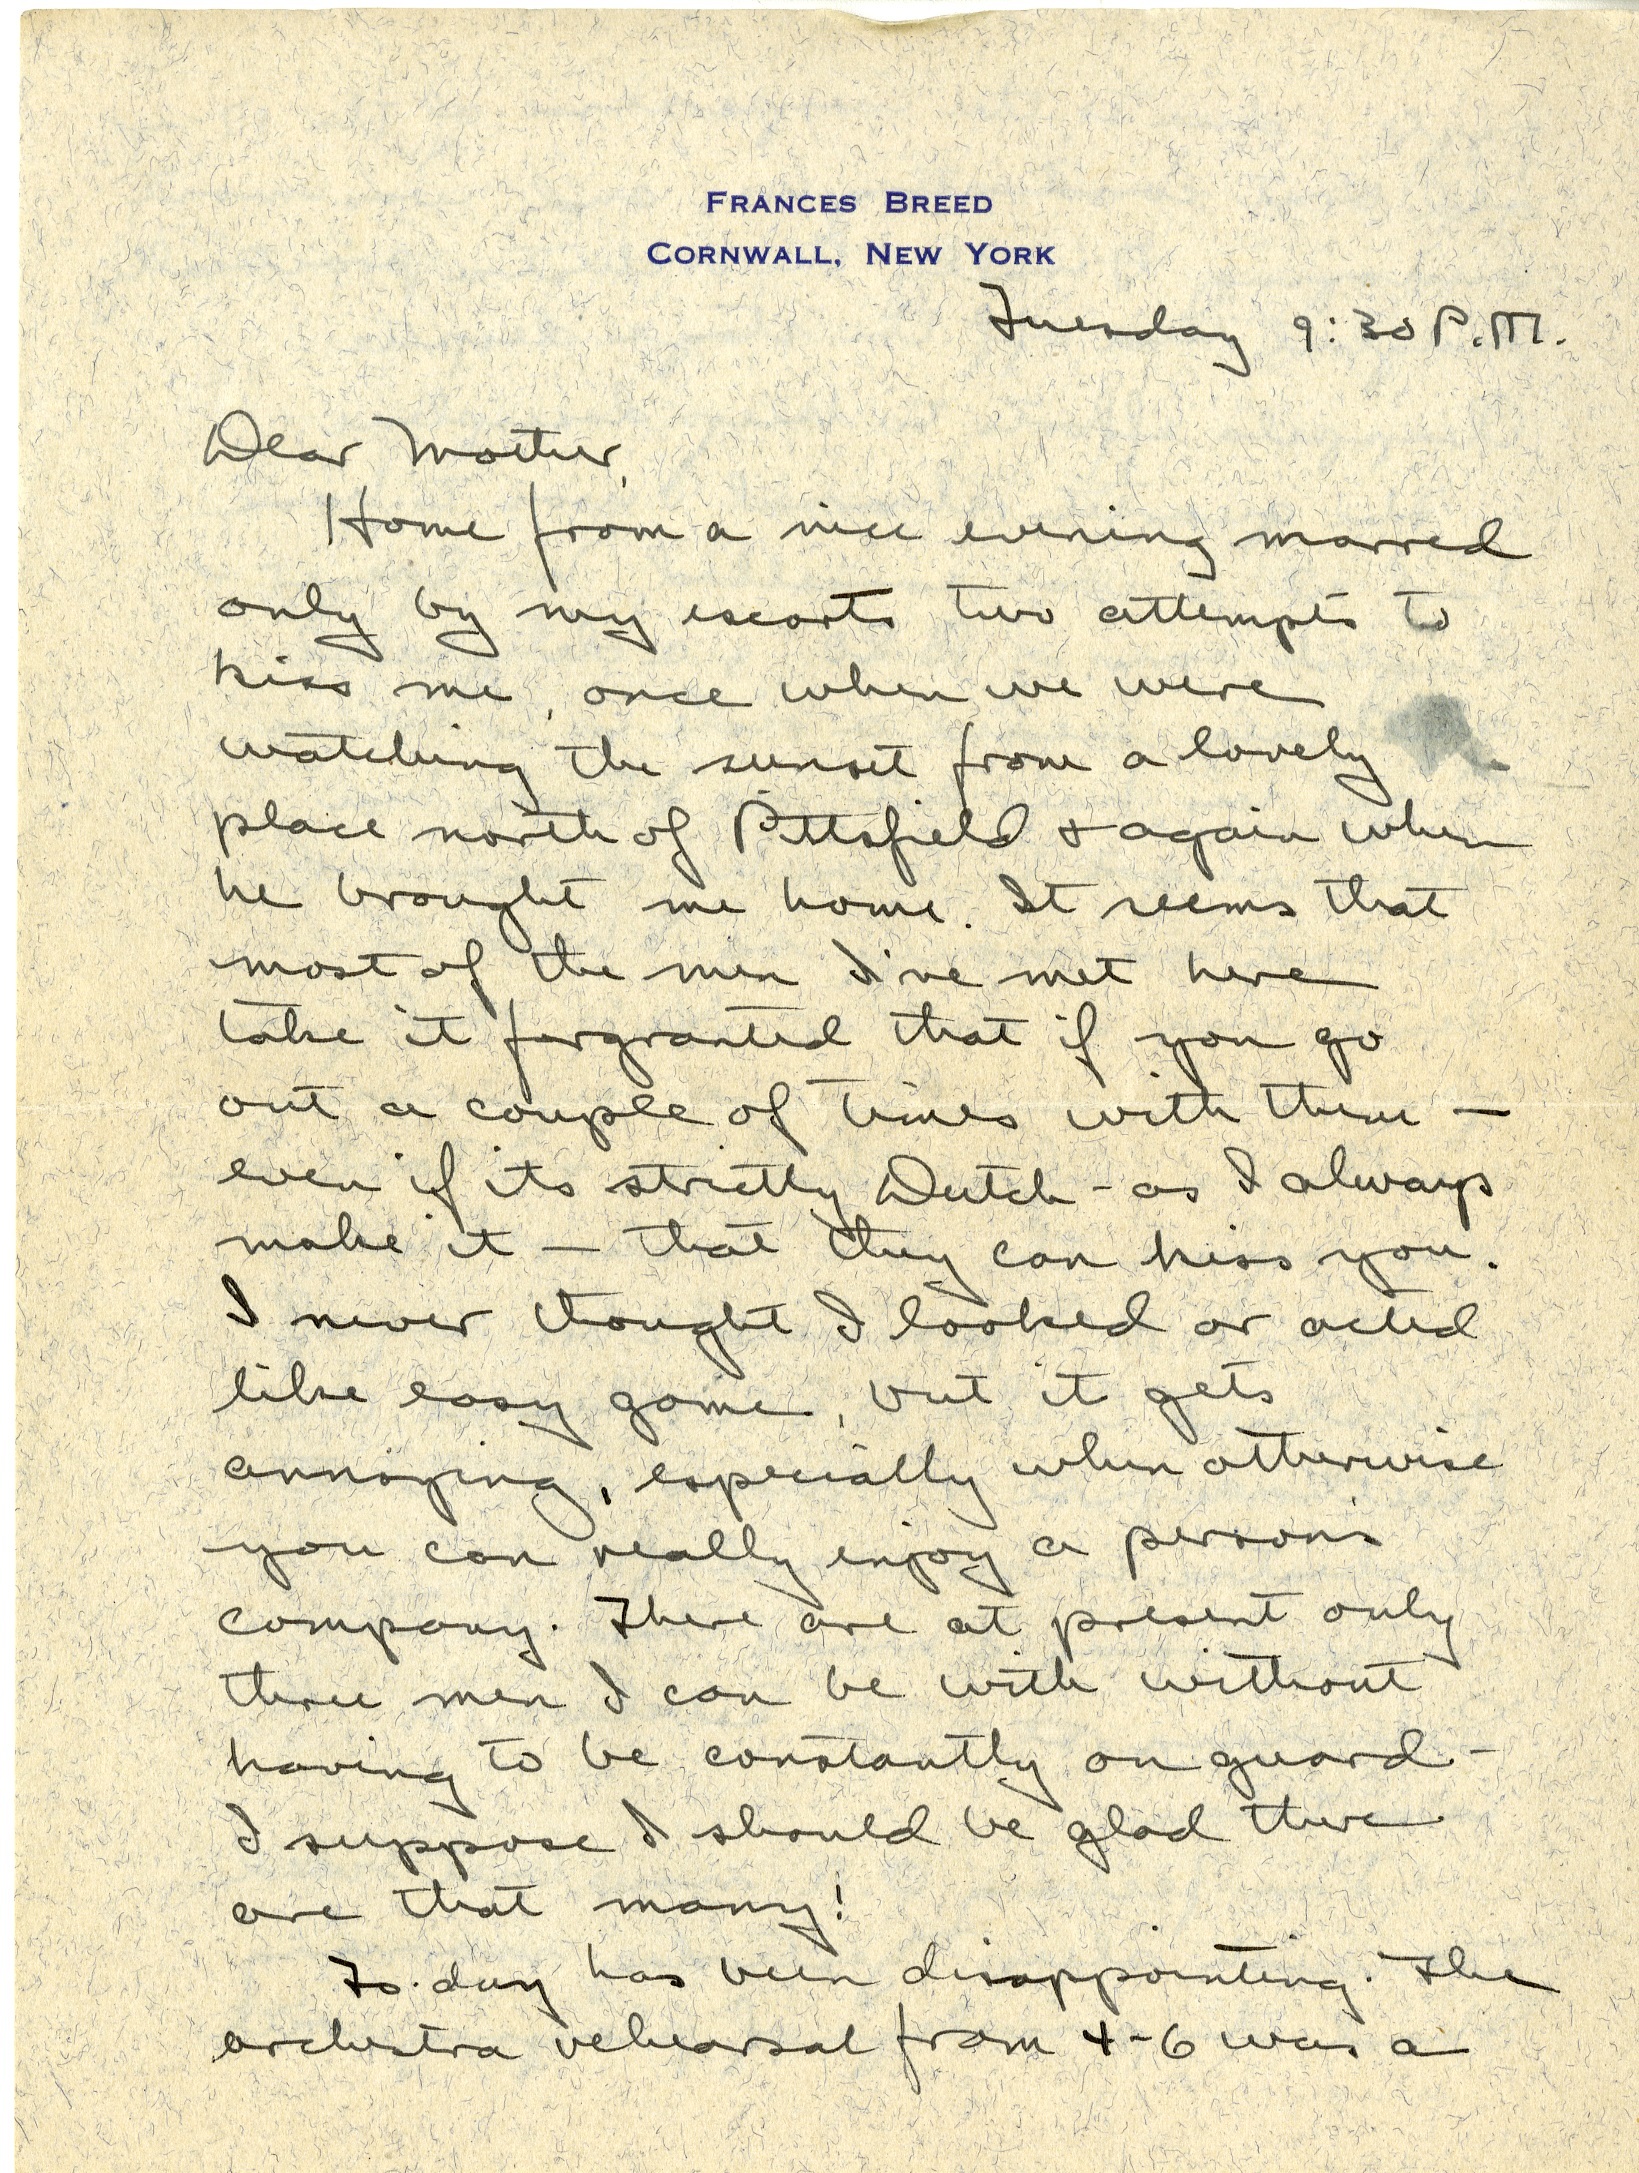 FRANCES BREED
CORNWALL, NEW YORK
Tuesday 9:30 P.M.
Dear Mother,
Home from a nice evening marred
only by my escorts two attempts to
kiss me, once when we were
watching the sunset from a lovely
place north of Pittsfield & again when
he brought me home. It seems that
most of the men I've met here
take it forgranted that if you go
out a couple of times with them —
even if its strictly Dutch - as I always
make it — that they can kiss you.
I never thought I looked or acted
like easy game, but it gets
annoying, especially when otherwise
you can really enjoy a person's
company. There are at present only
three men I can be with without
having to be constantly on guard -
I suppose I should be glad there
are that many!
To-day has been disappointing. The
orchestra rehearsal from 4-6 was a